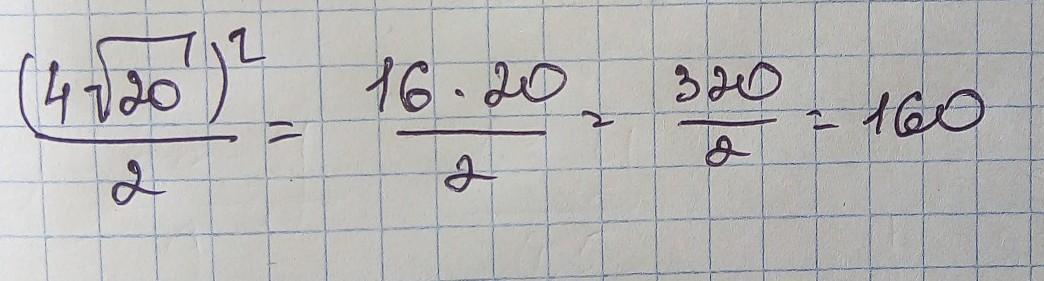 (4√20)²/2 = 16 · 20/2 = 320/2 = 160